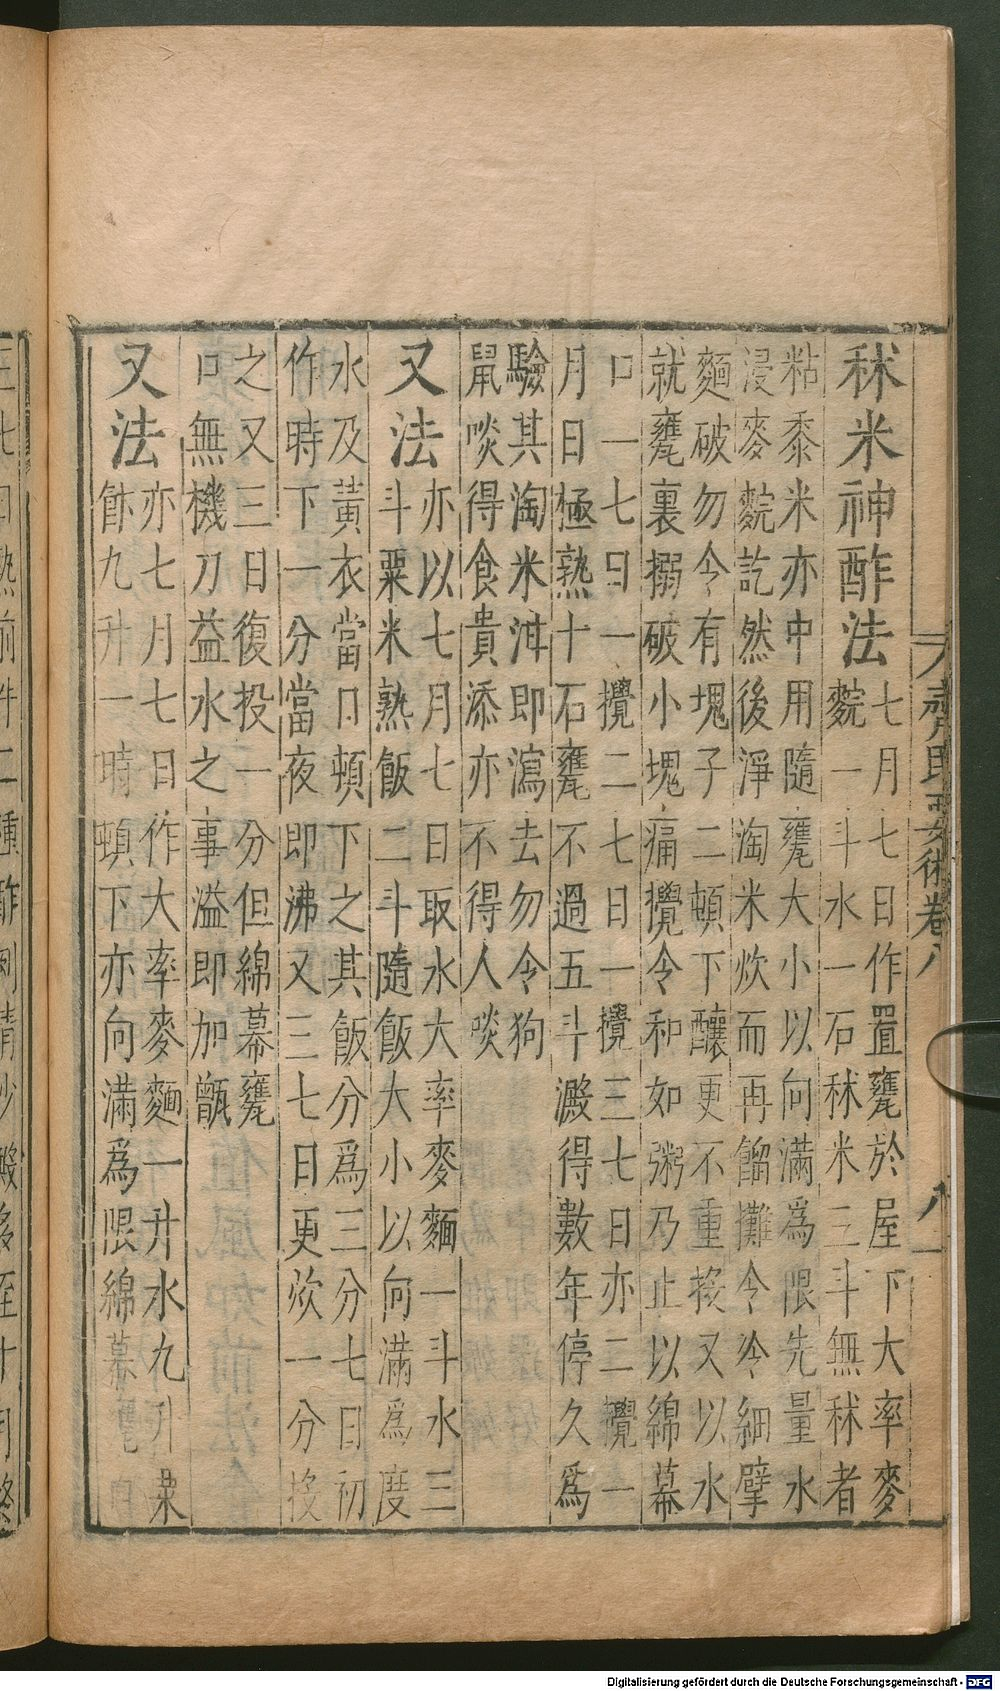 齊民要術卷八 八
秫米神酢法
七月七日作置甕於屋下大率麥
䴷一斗水一石秫米三斗無秫者
粘黍米亦中用隨甕大小以向滿爲限先量水
浸麥䴷訖然後淨淘米炊而再餾攤令冷細擘
麵破勿令有塊子二頓下釀更不重投又以水
就甕裏搦破小塊痛攪令和如粥乃止以綿幕
口一七日一攪二七日一攪三七日亦二攪一
月日極熟十石甕不過五斗澱得數年停久爲
驗其淘米泔即瀉去勿令狗
鼠啖得食貴添亦不得人啖
又法
亦以七月七日取水大率麥麵一斗水三
斗粟米熟飯二斗隨飯大小以向滿爲度
水及黃衣當日頓下之其飯分爲三分七日初
作時下一分當夜即沸又三七日更炊一分投
之又三日復投一分但綿幕甕
口無機刀益水之事溢即加甑
又法
亦七月七日作大率麥麵一升水九升粟
飰九升一時頓下亦向滿爲限綿幕甕口
三七日熟前件二種酢例清少澱多至十月終
Digitalisierung gefördert durch die Deutsche Forschungsgemeinschaft - DFG